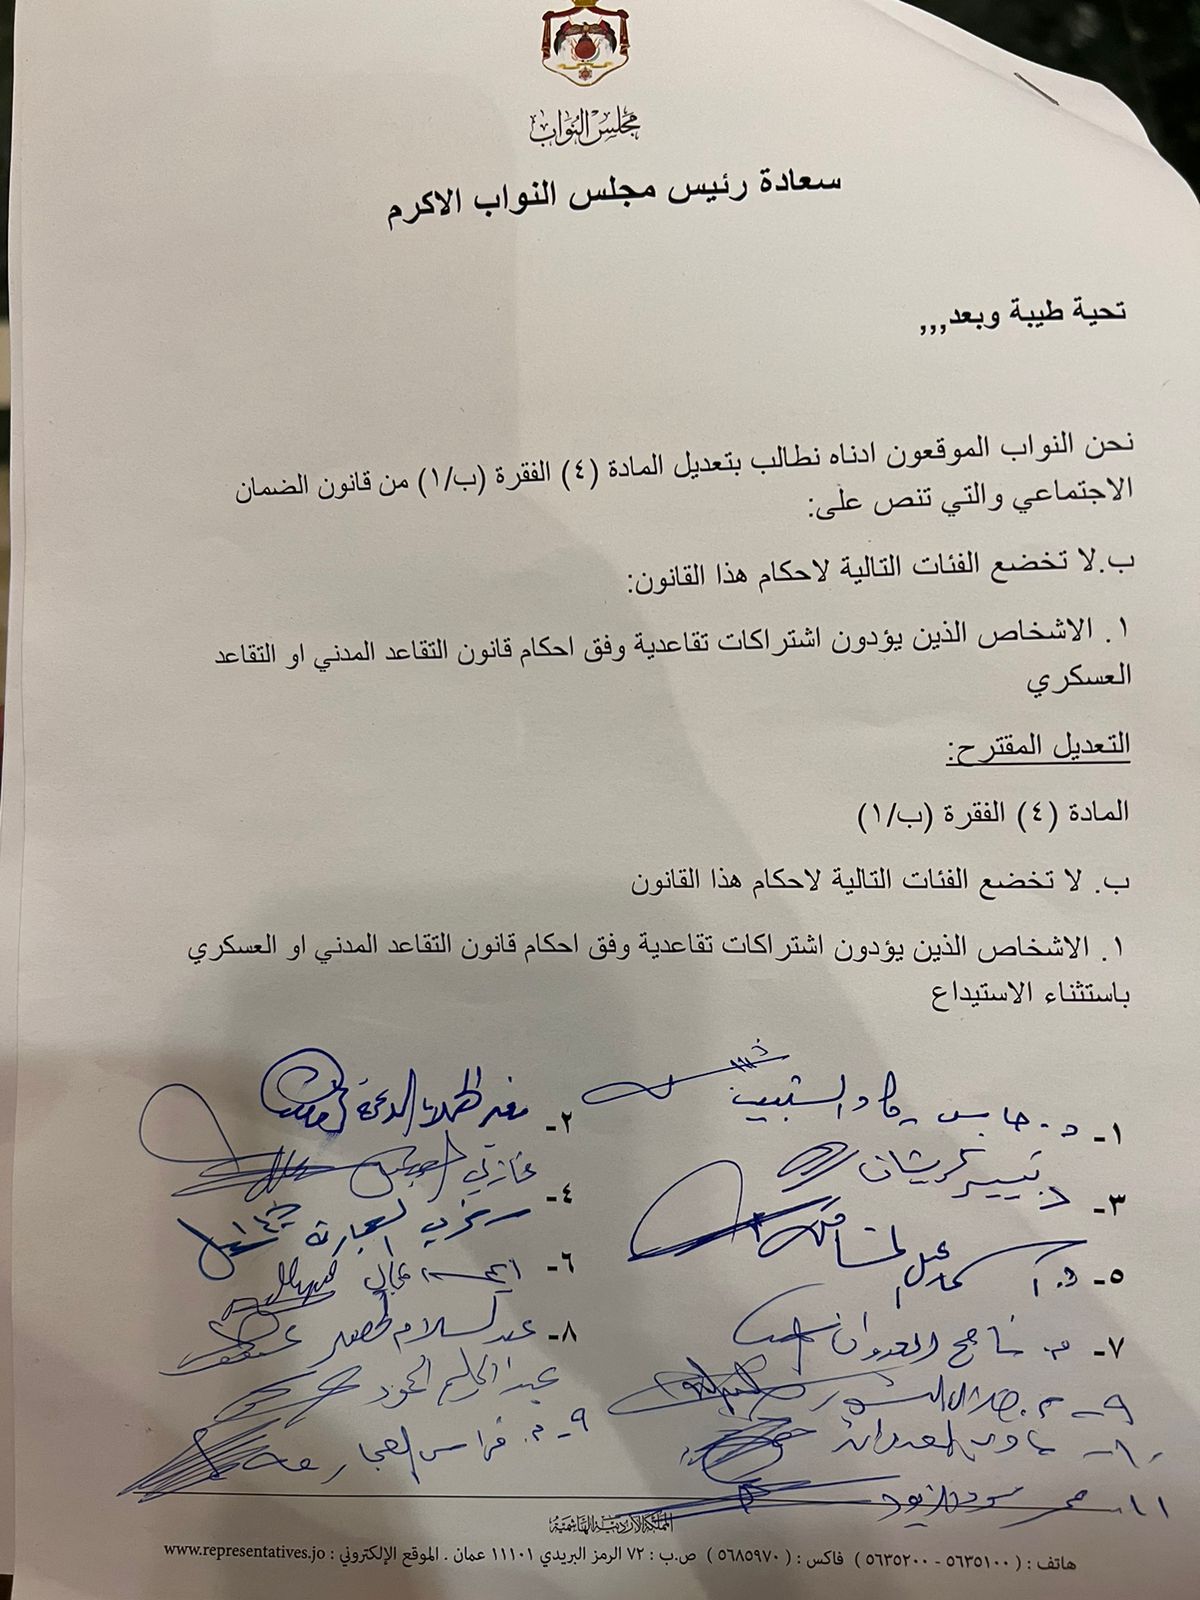 مجلس النواب
سعادة رئيس مجلس النواب الاكرم
تحية طيبة وبعد,,,
نحن النواب الموقعون ادناه نطالب بتعديل المادة (٤) الفقرة (ب/١) من قانون الضمان
الاجتماعي والتي تنص على:
ب.لا تخضع الفئات التالية لاحكام هذا القانون:
١. الاشخاص الذين يؤدون اشتراكات تقاعدية وفق احكام قانون التقاعد المدني او التقاعد
العسكري
التعديل المقترح:
المادة (٤) الفقرة (ب/١)
ب. لا تخضع الفئات التالية لاحكام هذا القانون
١. الاشخاص الذين يؤدون اشتراكات تقاعدية وفق احكام قانون التقاعد المدني او العسكري
باستثناء الاستيداع
١- د. حابس
٢-
٣- د. تيسير كريشان
٤- غازي
٥-
٦-
٧- م. سامح العدوان
٨- عبد السلام
عبد الحليم الحمود
٩- م.
٩- م. فراس العجارمة
١٠-
١١-
المملكة الأردنية الهاشمية
هاتف : ( ٥٦٣٥١٠٠ - ٥٦٣٥٢٠٠ ) فاكس : ( ٥٦٨٥٩٧٠ ) ص.ب : ٧٢ الرمز البريدي ١١١٠١ عمان . الموقع الإلكتروني : www.representatives.jo